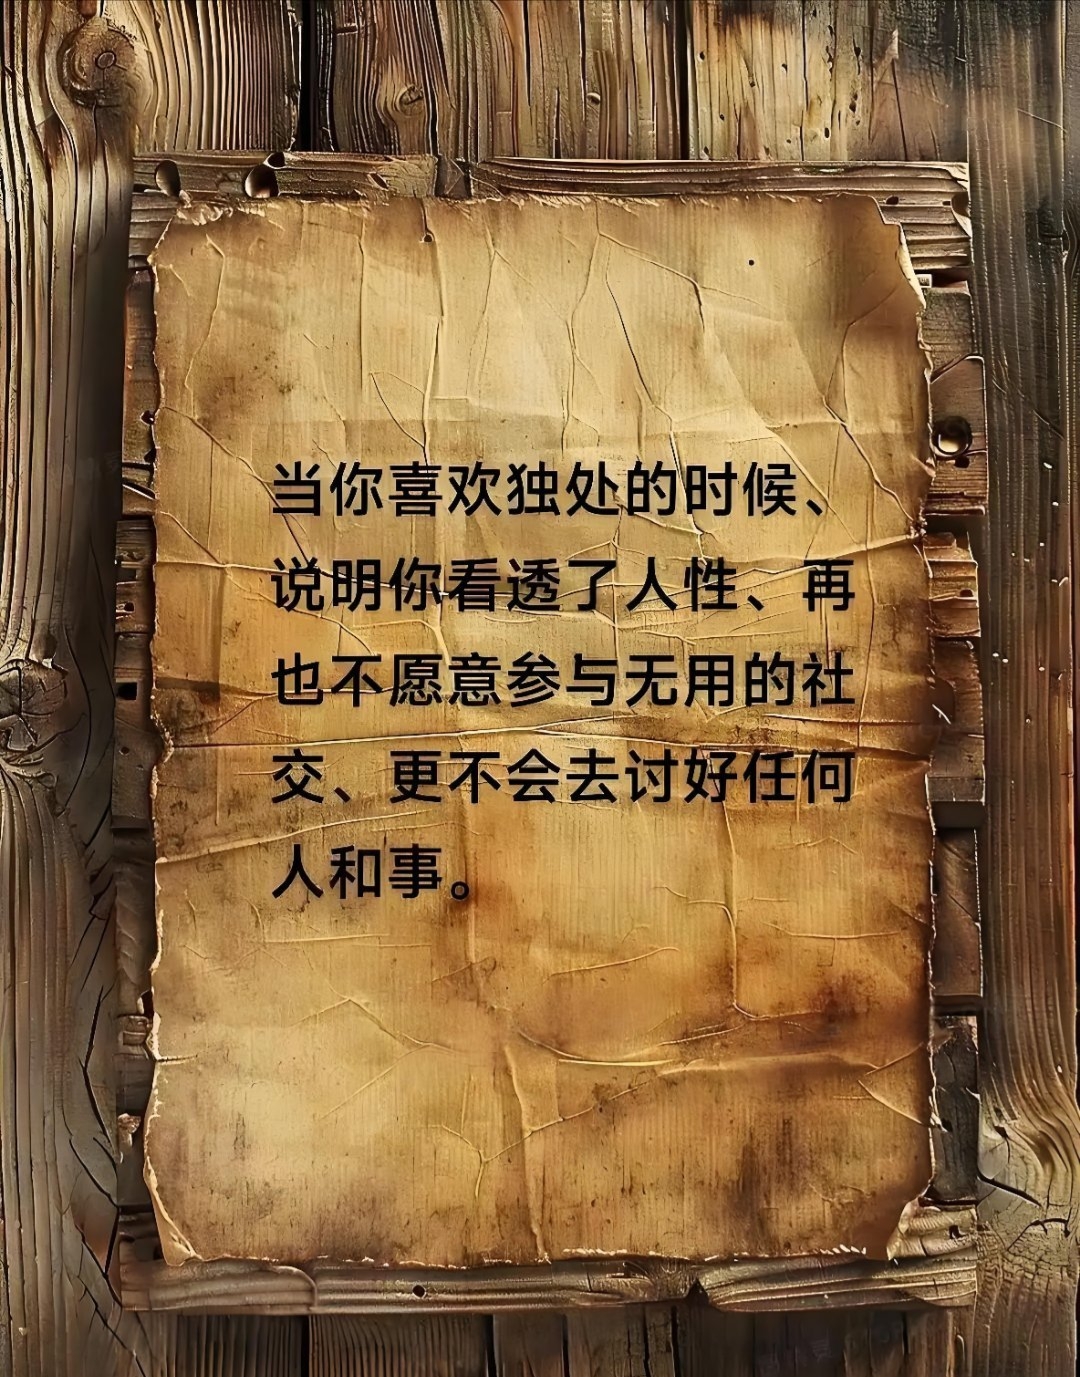 当你喜欢独处的时候、
说明你看透了人性、再
也不愿意参与无用的社
交、更不会去讨好任何
人和事。